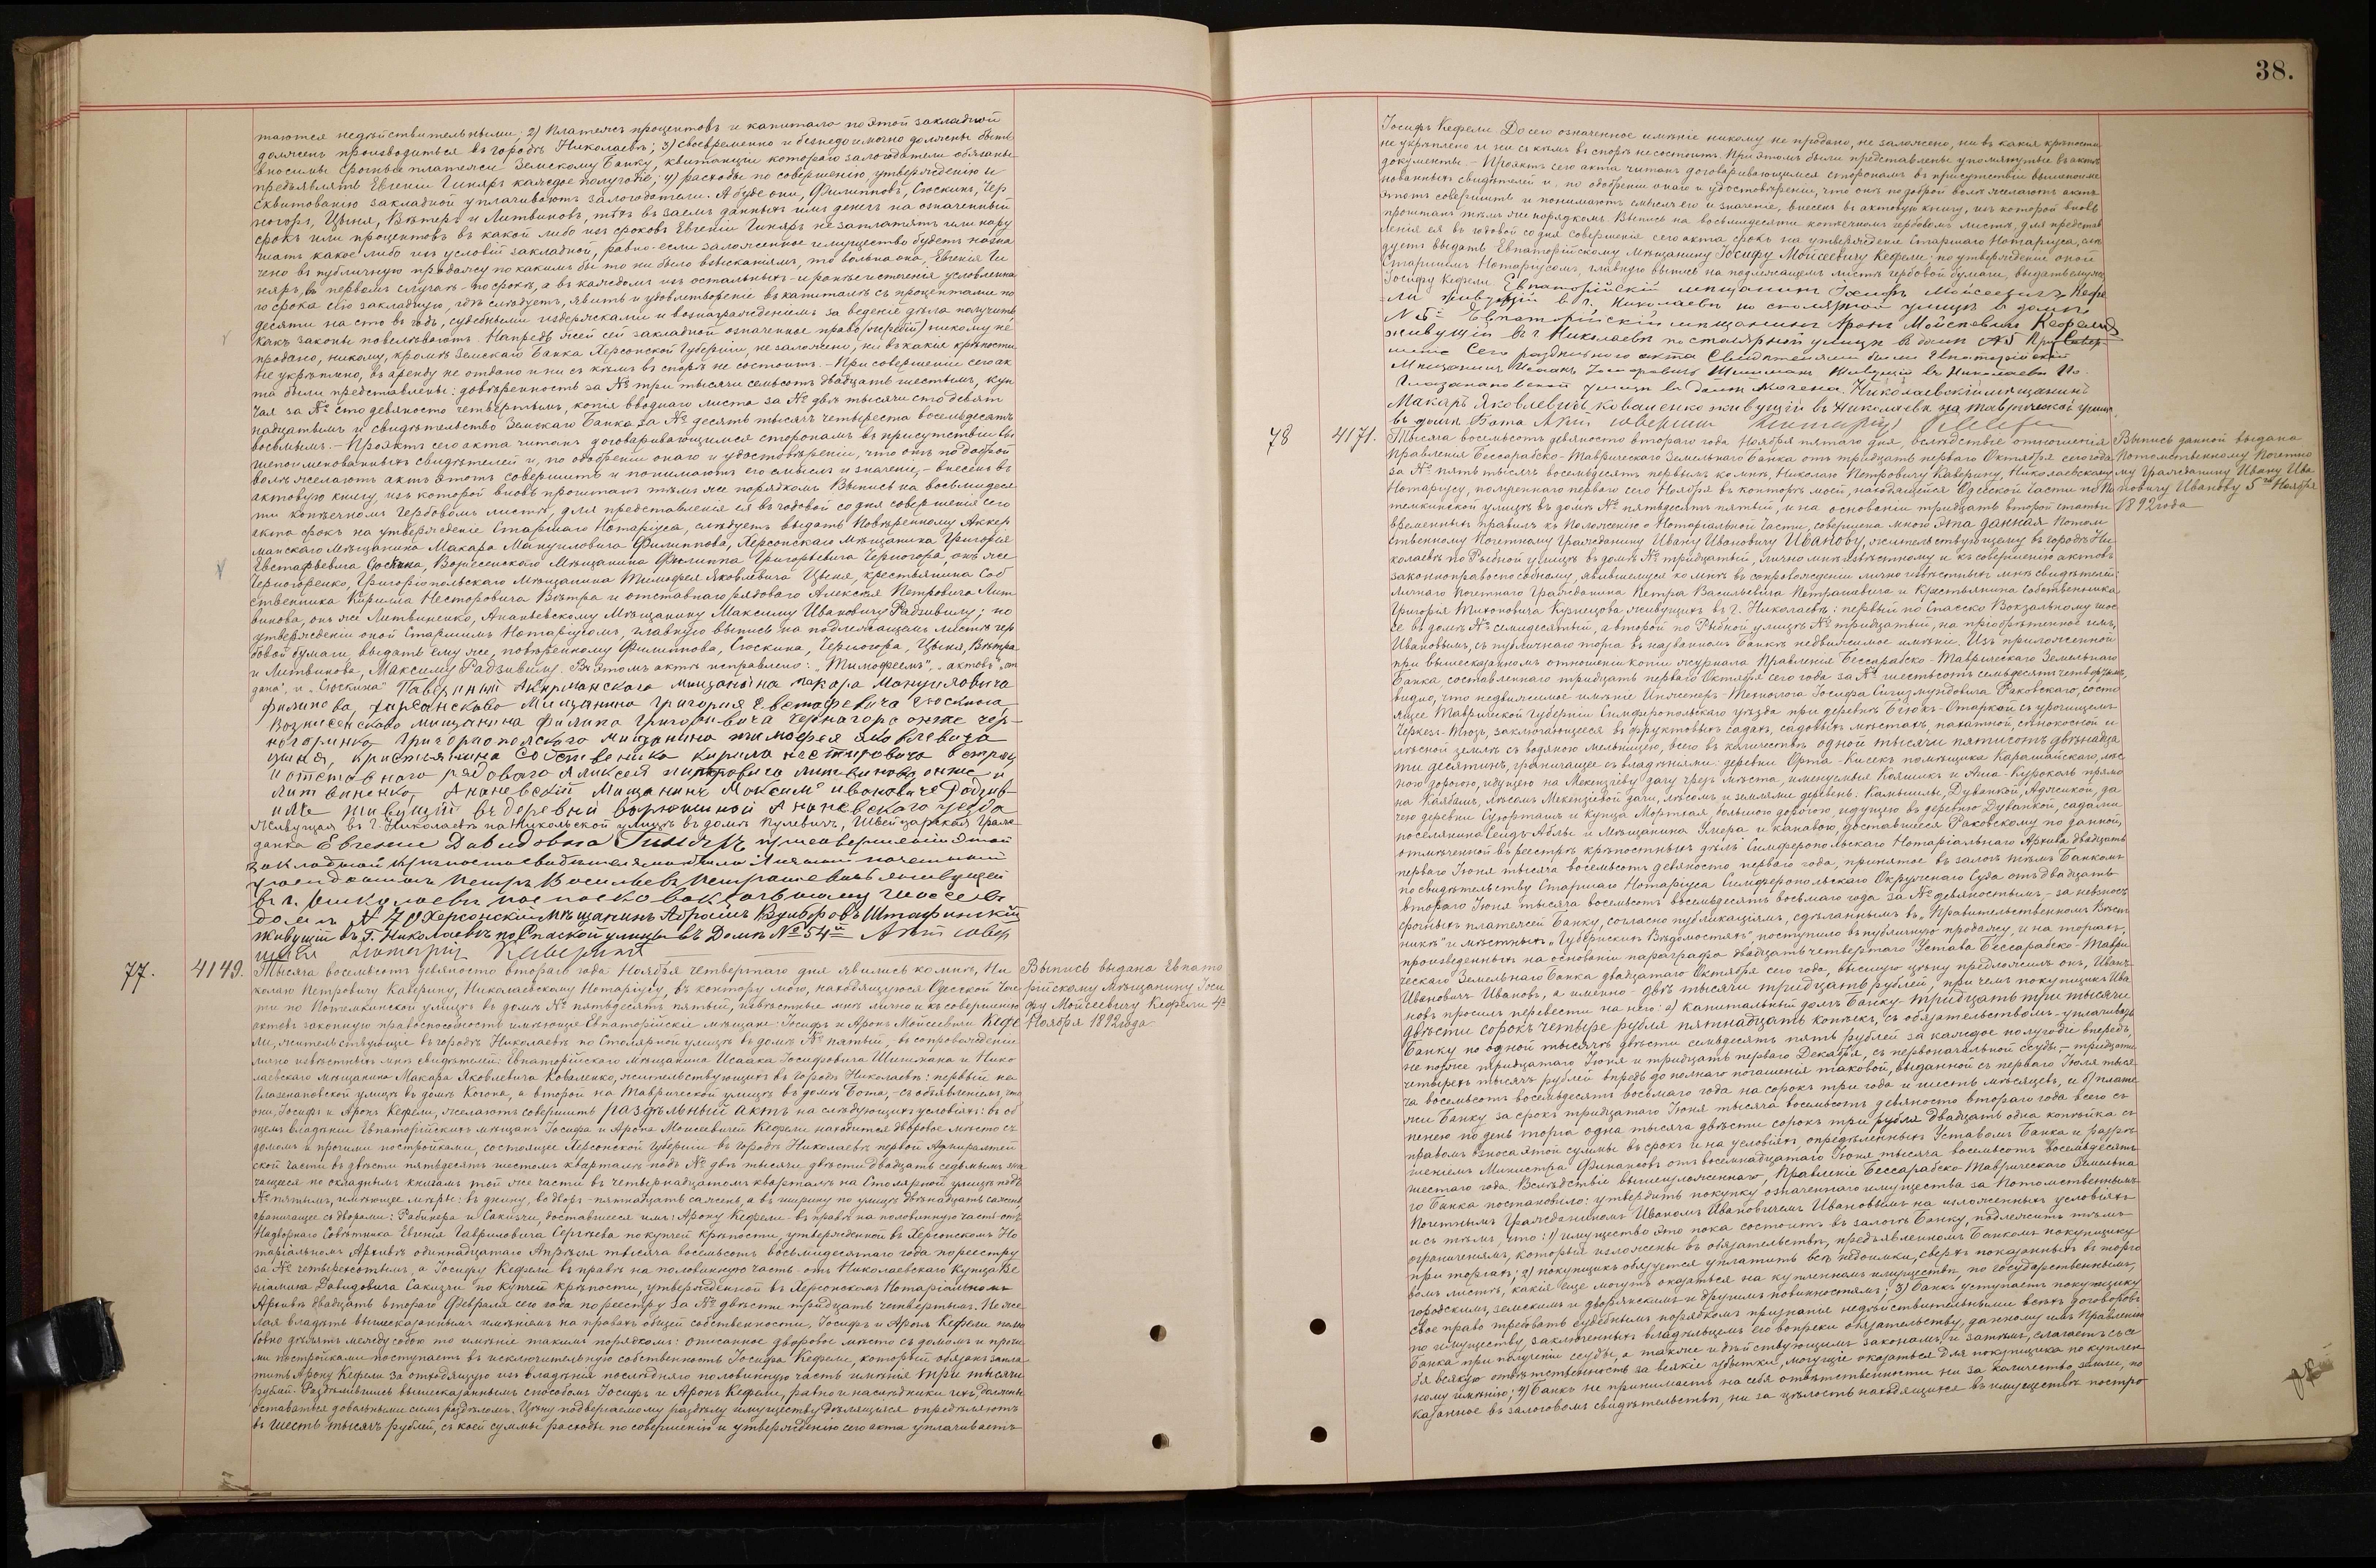 таются недѣйствительными; 2) платежъ процентовъ и капитала по этой закладной
должен производиться въ городѣ Николаевѣ; 3) своевременно и безнедоимочно должны быть
вносимы срочные платежи Земскому Банку, квитанціи котораго залогодатели обязаны
предъявлять Евгеніи Гиняръ каждое полугодіе; 4) расходы по совершенію, утвержденію и
сквитованію закладной уплачиваютъ залогодатели. А буде они, Филипповъ, Сюскинъ, Чер
ногоръ, Цыня, Вѣтеръ и Литвиновъ, тѣхъ въ заемъ данныхъ имъ денегъ на означенный
срокъ или процентовъ въ какой либо изъ сроковъ Евгеніи Гиняръ не заплатятъ или нару
шатъ какое либо изъ условій закладной, равно если заложенное имущество будетъ назна
чено въ публичную продажу по какимъ бы то ни было взысканіямъ, то вольна она, Евгенія Ги
няръ, въ первомъ случаѣ - по срокѣ, а въ каждомъ изъ остальныхъ - и ранѣе истеченія условленна
го срока сію закладную, гдѣ слѣдуетъ, явить и удовлетвореніе въ капиталѣ съ процентами по
десяти на сто въ годъ, судебными издержками и вознагражденіемъ за веденіе дѣла получить,
какъ законы повелѣваютъ. Напредъ же сей закладной означенное право никому не
продано, никому, кромѣ Земскаго Банка Херсонской Губерніи, не заложено, ни въ какія крѣпости
не укрѣплено, въ аренду не отдано и ни съ кѣмъ въ спорѣ не состоитъ. - При совершеніи сего ак
та были представлены: довѣренность за № три тысячи семьсотъ двадцать шестымъ, куп
чая за № сто девяносто четвертымъ, копія вводнаго листа за № двѣ тысячи сто девят
надцатымъ и свидѣтельство Земскаго Банка за № десять тысячъ четыреста восемьдесятъ
восьмымъ. - Проэктъ сего акта читанъ договаривающимся сторонамъ въ присутствіи вы
шепоименованныхъ свидѣтелей и, по одобреніи онаго и удостовѣреніи, что онѣ по доброй
волѣ желаютъ актъ этотъ совершить и понимаютъ его смыслъ и значеніе, - внесенъ въ
актовую книгу, изъ которой вновь прочитанъ тѣмъ же порядкомъ. Выпись на восьмидеся
ти копѣечномъ гербовомъ листѣ, для представленія ея въ годовой со дня совершенія сего
акта срокъ на утвержденіе Старшаго Нотаріуса, слѣдуетъ выдать Повѣренному Аккер
манскаго Мѣщанина Макара Мануиловича Филиппова, Херсонскаго Мѣщанина Григорія
Евстафьевича Сюскина, Вознесенскаго Мѣщанина Филиппа Григорьевича Черногора, онъ же
Черногоренко, Григоріопольскаго Мѣщанина Тимофея Яковлевича Цыня, крестьянина Соб
ственника Кирилла Несторовича Вѣтра и отставнаго рядоваго Алексѣя Петровича Лит
винова, онъ же Литвиненко, Ананьевскому Мѣщанину Максиму Ивановичу Радзивилу; по
утвержденіи оной Старшимъ Нотаріусомъ, главную выпись на подлежащемъ листѣ гер
бовой бумаги выдать ему же, повѣренному Филиппова, Сюскина, Черногора, Цыня, Вѣтра
и Литвинова, Максиму Радзивилу. Въ этомъ актѣ исправлено: „Тимофеемъ", „актовъ",
и „Сюскина" Павѣрѣный Акирманскаго мищанина Макара Мануиловича
Филипова, Харсанскаво Мищанина Григория Евстафевича Сюскина
Вознисенскаво мищанина Филипа Григоривича Чернагора онже чер-
ногоринко Григориополскаго мищанина тимофея яковлевича
цыня, кристьянина собственика кирила нестировича ветра
и отставнаго рядоваго Аликсея питровича литвинова онже и
литвиненко, Ананевский мищанинъ Максимъ ивановиче Радзив-
илъ живущий въ деревни Ананевскаго уезда
Живущая въ г. Николаевѣ на Никольской улицѣ въ домѣ Кулевичъ, Швейцарская граж-
данка Евгенія Давидовна Гиняръ при совершеніи этой
закладной крѣпости свидѣтелями были Личный почетный
гражданинъ Петръ Васильевъ Петрашевичъ живущій
въ г. Николаевѣ по спаско вокзальному шоссе въ
домѣ № 70 Херсонскій Мѣщанинъ Абрамъ Штафинскій
Живущій въ Г. Николаевѣ по Спаской улицы въ Домѣ № 54й Актъ совер
шилъ нотаріусъ Каверинъ
77.
4149.
Тысяча восемьсотъ девяносто втораго года Ноября четвертаго дня явились ко мнѣ, Ни
колаю Петровичу Каверину, Николаевскому Нотаріусу, въ контору мою, находящуюся Одесской Час
ти по Потемкинской улицѣ въ домѣ № пятьдесятъ пятый, извѣстные мнѣ лично и къ совершенію
актовъ законную правоспособность имѣющіе Евпаторійскіе мѣщане: Іосифъ и Аронъ Мойсеевичи Кефе
ли, жительствующіе въ городѣ Николаевѣ по Столярной улицѣ въ домѣ № пятый, въ сопровожденіи
лично извѣстныхъ мнѣ свидѣтелей: Евпаторійскаго Мѣщанина Исаака Іосифовича Шишмана и Нико
лаевскаго мѣщанина Макара Яковлевича Коваленко, жительствующихъ въ городѣ Николаевѣ: первый на
Глазенаповской улицѣ въ домѣ Когона, а второй на Таврической улицѣ въ домѣ Бота, - съ объявленіемъ, что
они, Іосифъ и Аронъ Кефели, желаютъ совершить раздѣльный актъ на слѣдующихъ условіяхъ: въ об
щемъ владѣніи Евпаторійскихъ мѣщанъ Іосифа и Арона Моисеевичей Кефели находится дворовое мѣсто съ
домомъ и прочими постройками, состоящее Херсонской Губерніи въ городѣ Николаевѣ первой Адмиралтей
ской части въ двѣсти пятьдесятъ шестомъ кварталѣ подъ № двѣ тысячи двѣсти двадцать седьмымъ зна
чащееся по окладнымъ книгамъ той же части въ четырнадцатомъ кварталѣ на Столярной улицѣ подъ
№ пятымъ, имѣющее мѣры: въ длину, во дворъ - пятнадцать сажень, а въ ширину по улицѣ двѣнадцать сажень,
граничащее съ дворами: Рабинера и Сакизчи, доставшееся имъ: Арону Кефели - въ правѣ на половинную часть отъ
Надворнаго Совѣтника Евгенія Гавриловича Сергѣева по купчей крѣпости, утвержденной въ Херсонскомъ Но
таріальномъ Архивѣ одиннадцатаго Апрѣля тысяча восемьсотъ восьмидесятаго года по реестру
за № четырехсотымъ, а Іосифу Кефели въ правѣ на половинную часть отъ Николаевскаго Купца Ве
ніамина Давидовича Сакизчи по купчей крѣпости, утвержденной въ Херсонскомъ Нотаріальномъ
Архивѣ двадцать втораго Февраля сего года по реестру за № двѣсти тридцать четвертымъ. Не же
лая владѣть вышесказаннымъ имѣніемъ на правахъ общей собственности, Іосифъ и Аронъ Кефели полю
бовно дѣлятъ между собою то имѣніе такимъ порядкомъ: описанное дворовое мѣсто съ домомъ и прочи
ми постройками поступаетъ въ исключительную собственность Іосифа Кефели, который обязанъ запла
тить Арону Кефели за отходящую изъ владѣнія послѣдняго половинную часть имѣнія три тысячи
рублей. Раздѣлившись вышесказаннымъ способомъ Іосифъ и Аронъ Кефели, равно и наслѣдники ихъ, должны
оставаться довольными симъ раздѣломъ. Цѣну подвергаемому раздѣлу имуществу дѣлящіеся опредѣляютъ
въ шесть тысячъ рублей, съ коей суммы расходы по совершенію и утвержденію сего акта уплачиваетъ
Выпись выдана Евпато
рійскому Мѣщанину Іоси
фу Мойсеевичу Кефели 4го
Ноября 1892 года
38.
Іосифъ Кефели. До сего означенное имѣніе никому не продано, не заложено, ни въ какія крѣпости
не укрѣплено и ни съ кѣмъ въ спорѣ не состоитъ. При этомъ были представлены упомянутые въ актѣ
документы. - Проэктъ сего акта читанъ договаривающимся сторонамъ въ присутствіи вышепоиме
нованныхъ свидѣтелей и, по одобреніи онаго и удостовѣреніи, что онѣ по доброй волѣ желаютъ актъ
этотъ совершить и понимаютъ смыслъ его и значеніе, внесенъ въ актовую книгу, изъ которой вновь
прочитанъ тѣмъ же порядкомъ. Выпись на восьмидесяти копѣечномъ гербовомъ листѣ, для представ
ленія ея въ годовой со дня совершенія сего акта срокъ на утвержденіе Старшаго Нотаріуса, слѣ
дуетъ выдать Евпаторійскому Мѣщанину Іосифу Мойсеевичу Кефели; по утвержденіи оной
Старшимъ Нотаріусомъ, главную выпись на подлежащемъ листѣ гербовой бумаги, выдать ему же,
Іосифу Кефели. Евпаторійскій мѣщанинъ Іосифъ Мойсеевичъ Кефе
ли живущій въ г. Николаевѣ по столярной улицѣ в домѣ
№ 5й Евпаторійскій мѣщанинъ Аронъ Мойсеевичъ Кефели
живущій въ г Николаевѣ по столярной улицѣ в домѣ №5 При совер-
шеніе Сего раздѣльного акта Свидетелями были Евпаторійскій
Мищанинъ Исаакъ Іосифовичъ Шишманъ Живущій въ Николаевѣ По
Глазанаповской улицы в Домѣ Когена. Николаевскій мѣщанинъ
Макаръ Яковлевичъ Коваленко живущій въ Николаевѣ на Таврической улицѣ
въ домѣ Бота Актъ совершилъ Нотаріусъ
78
4171.
Тысяча восемьсотъ девяносто втораго года Ноября пятаго дня, вслѣдствіе отношенія
Правленія Бессарабско-Таврическаго Земельнаго Банка отъ тридцать перваго Октября сего года
за № пять тысячъ восемьдесятъ первымъ ко мнѣ, Николаю Петровичу Каверину, Николаевскому
Нотаріусу, полученнаго перваго сего Ноября въ конторѣ моей, находящейся Одесской Части по По
темкинской улицѣ въ домѣ № пятьдесятъ пятый, и на основаніи тридцать второй статьи
временныхъ правилъ къ Положенію о Нотаріальной Части, совершена мною эта данная Потом
ственному Почетному Гражданину Ивану Ивановичу Иванову, жительствующему въ городѣ Ни
колаевѣ по Рыбной улицѣ въ домѣ № тридцатый, лично мнѣ извѣстному и къ совершенію актовъ
законноправоспособному, явившемуся ко мнѣ въ сопровожденіи лично извѣстныхъ мнѣ свидѣтелей:
Личнаго Почетнаго Гражданина Петра Васильевича Петрашевича и Крестьянина Собственника
Григорія Тихоновича Кузнецова живущихъ въ г. Николаевѣ: первый по Спасско Вокзальному шос
се въ домѣ № семидесятый, а второй по Рыбной улицѣ № тридцатый, на пріобрѣтенное имъ,
Ивановымъ, съ публичнаго торга въ названномъ Банкѣ недвижимое имѣніе. Изъ приложенной
при вышесказанномъ отношеніи копіи журнала Правленія Бессарабско-Таврическаго Земельнаго
Банка составленнаго тридцать перваго Октября сего года за № шестьсотъ семьдесятъ четвертымъ,
видно, что недвижимое имѣніе Инженеръ-Технолога Іосифа Сигизмундовича Раковскаго, состо
ящее Таврической Губерніи Симферопольскаго уѣзда при деревнѣ Біюкъ-Отаркой съ урочищемъ
Черкез-Тюзъ, заключающееся въ фруктовыхъ садахъ, садовыхъ мѣстахъ, пахатной, сѣнокосной и
лѣсной землѣ съ водяною мельницею, всего въ количествѣ одной тысячи пятисотъ двѣнадца
ти десятинъ, граничащее съ владѣніями: деревни Орта-Кисекъ помѣщика Карашайскаго, лѣс
ною дорогою, идущею на Мекензіеву дачу чрезъ мѣста, именуемыя Кояшикъ и Аша-Куроколь прямо
на Каябашъ, лѣсомъ Мекензіевой дачи, лѣсомъ и землями деревень: Камышлы, Дуванкой, Аджикой, да
чею деревни Сююрташъ и купца Мортая, большою дорогою идущею въ деревню Дуванкой, садами
поселянина Сеидъ-Аблы и Мѣщанина Умера и канавою, доставшееся Раковскому по данной,
отмѣченной въ реестрѣ крѣпостныхъ дѣлъ Симферопольскаго Нотаріальнаго Архива двадцать
перваго Іюня тысяча восемьсотъ девяносто перваго года, принятое въ залогъ тѣмъ Банкомъ
по свидѣтельству Старшаго Нотаріуса Симферопольскаго Окружнаго Суда отъ двадцать
втораго Іюня тысяча восемьсотъ восемьдесятъ восьмаго года за № девяностымъ - за невзносъ
срочныхъ платежей Банку, согласно публикаціямъ, сдѣланнымъ въ „Правительственномъ Вѣст
никѣ" и мѣстныхъ „Губернскихъ Вѣдомостяхъ", поступило въ публичную продажу, и на торгахъ,
произведенныхъ на основаніи параграфа двадцать четвертаго Устава Бессарабско-Таври
ческаго Земельнаго Банка двадцатаго Октября сего года, высшую цѣну предложилъ онъ, Иванъ
Ивановичъ Ивановъ, а именно - двѣ тысячи тридцать рублей, при чемъ покупщикъ Ива
новъ просилъ перевести на него: а) капитальный долгъ Банку - тридцать три тысячи
двѣсти сорокъ четыре рубля пятнадцать копѣекъ, съ обязательствомъ - уплачивать
Банку по одной тысячѣ двѣсти семьдесятъ пять рублей за каждое полугодіе впередъ,
не позже тридцатаго Іюня и тридцать перваго Декабря, съ первоначальной ссуды - тридцати
четырехъ тысячъ рублей впредь до полнаго погашенія таковой, выданной съ перваго Іюля тыся
ча восемьсотъ восемьдесятъ восьмаго года на сорокъ три года и шесть мѣсяцевъ, и б) плате
жи Банку за срокъ тридцатаго Іюня тысяча восемьсотъ девяносто втораго года всего съ
пенею по день торга одна тысяча двѣсти сорокъ три рубля двадцать одна копѣйка съ
правомъ взноса этой суммы въ срокъ и на условіяхъ опредѣленныхъ Уставомъ Банка и разрѣ
шеніемъ Министра Финансовъ отъ восемнадцатаго Іюня тысяча восемьсотъ восемьдесятъ
шестаго года. Вслѣдствіе вышеизложеннаго, Правленіе Бессарабско-Таврическаго Земельна
го Банка постановило: утвердить покупку означеннаго имущества за Потомственнымъ
Почетнымъ Гражданиномъ Иваномъ Ивановичемъ Ивановымъ на изложенныхъ условіяхъ
и съ тѣмъ, что: 1) имущество это пока состоитъ въ залогѣ Банку, подлежитъ тѣмъ
ограниченіямъ, которыя изложены въ обязательствѣ, предъявленномъ Банкомъ покупщику
при торгахъ; 2) покупщикъ обязуется уплатить всѣ недоимки, сверхъ показанныхъ въ торго
вомъ листѣ, какія еще могутъ оказаться на купленномъ имуществѣ, по государственнымъ,
городскимъ, земскимъ и дворянскимъ и другимъ повинностямъ; 3) Банкъ уступаетъ покупщику
свое право требовать судебнымъ порядкомъ признанія недѣйствительными всѣхъ договоровъ
по имуществу, заключенныхъ владѣльцемъ его вопреки обязательству, данному имъ Правленію
Банка при полученіи ссуды, а также и дѣйствующимъ законамъ, и затѣмъ, слагаетъ съ се
бя всякую отвѣтственность за всякіе убытки, могущіе оказаться для покупщика по куплен
ному имѣнію; 4) Банкъ не принимаетъ на себя отвѣтственности ни за количество земли, по
казанное въ залоговомъ свидѣтельствѣ, ни за цѣлость находящихся въ имуществѣ постро
Выпись данной выдана
Потомственному Почетно
му Гражданину Ивану Ива
новичу Иванову 5го Ноября
1892 года